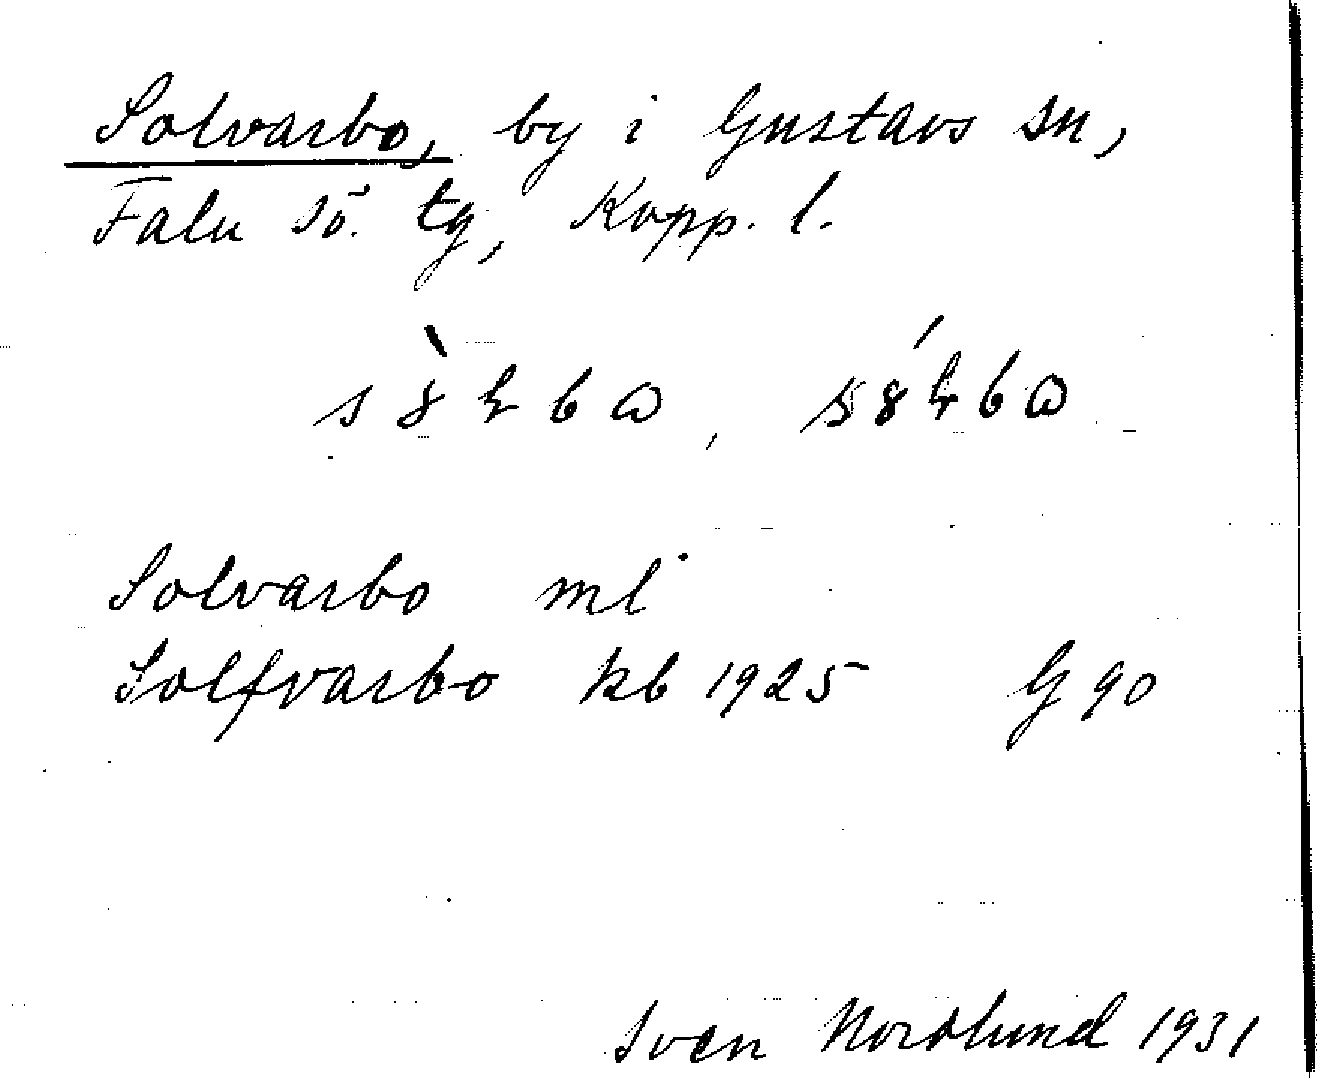 Solvarbo, by i Gustavs sn,
Falu sö. tg, Kopp. l.
Solvarbo ml
Solfvarbo kb 1925 G 90
Sven Nordlund 1931